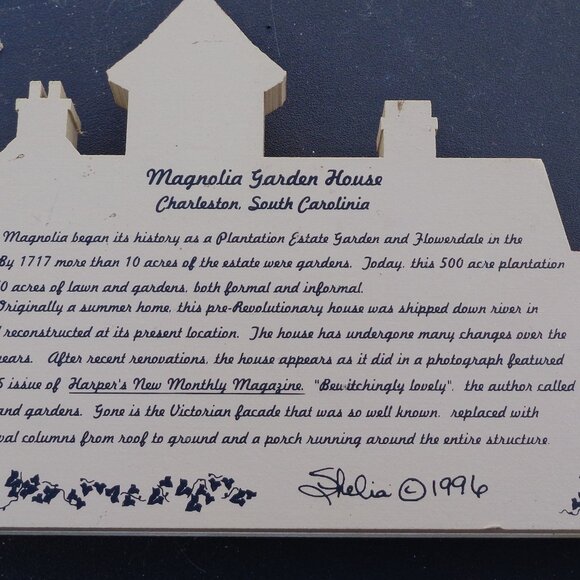 Magnolia Garden House
Charleston, South Carolina
Magnolia began its history as a Plantation Estate Garden and Flowerdale in the
By 1717 more than 10 acres of the estate were gardens. Today, this 500 acre plantation
0 acres of lawn and gardens, both formal and informal.
Originally a summer home, this pre-Revolutionary house was shipped down river in
reconstructed at its present location. The house has undergone many changes over the
years. After recent renovations, the house appears as it did in a photograph featured
issue of Harper's New Monthly Magazine. "Bewitchingly lovely", the author called
and gardens. Gone is the Victorian facade that was so well known, replaced with
val columns from roof to ground and a porch running around the entire structure.
Shelia © 1996